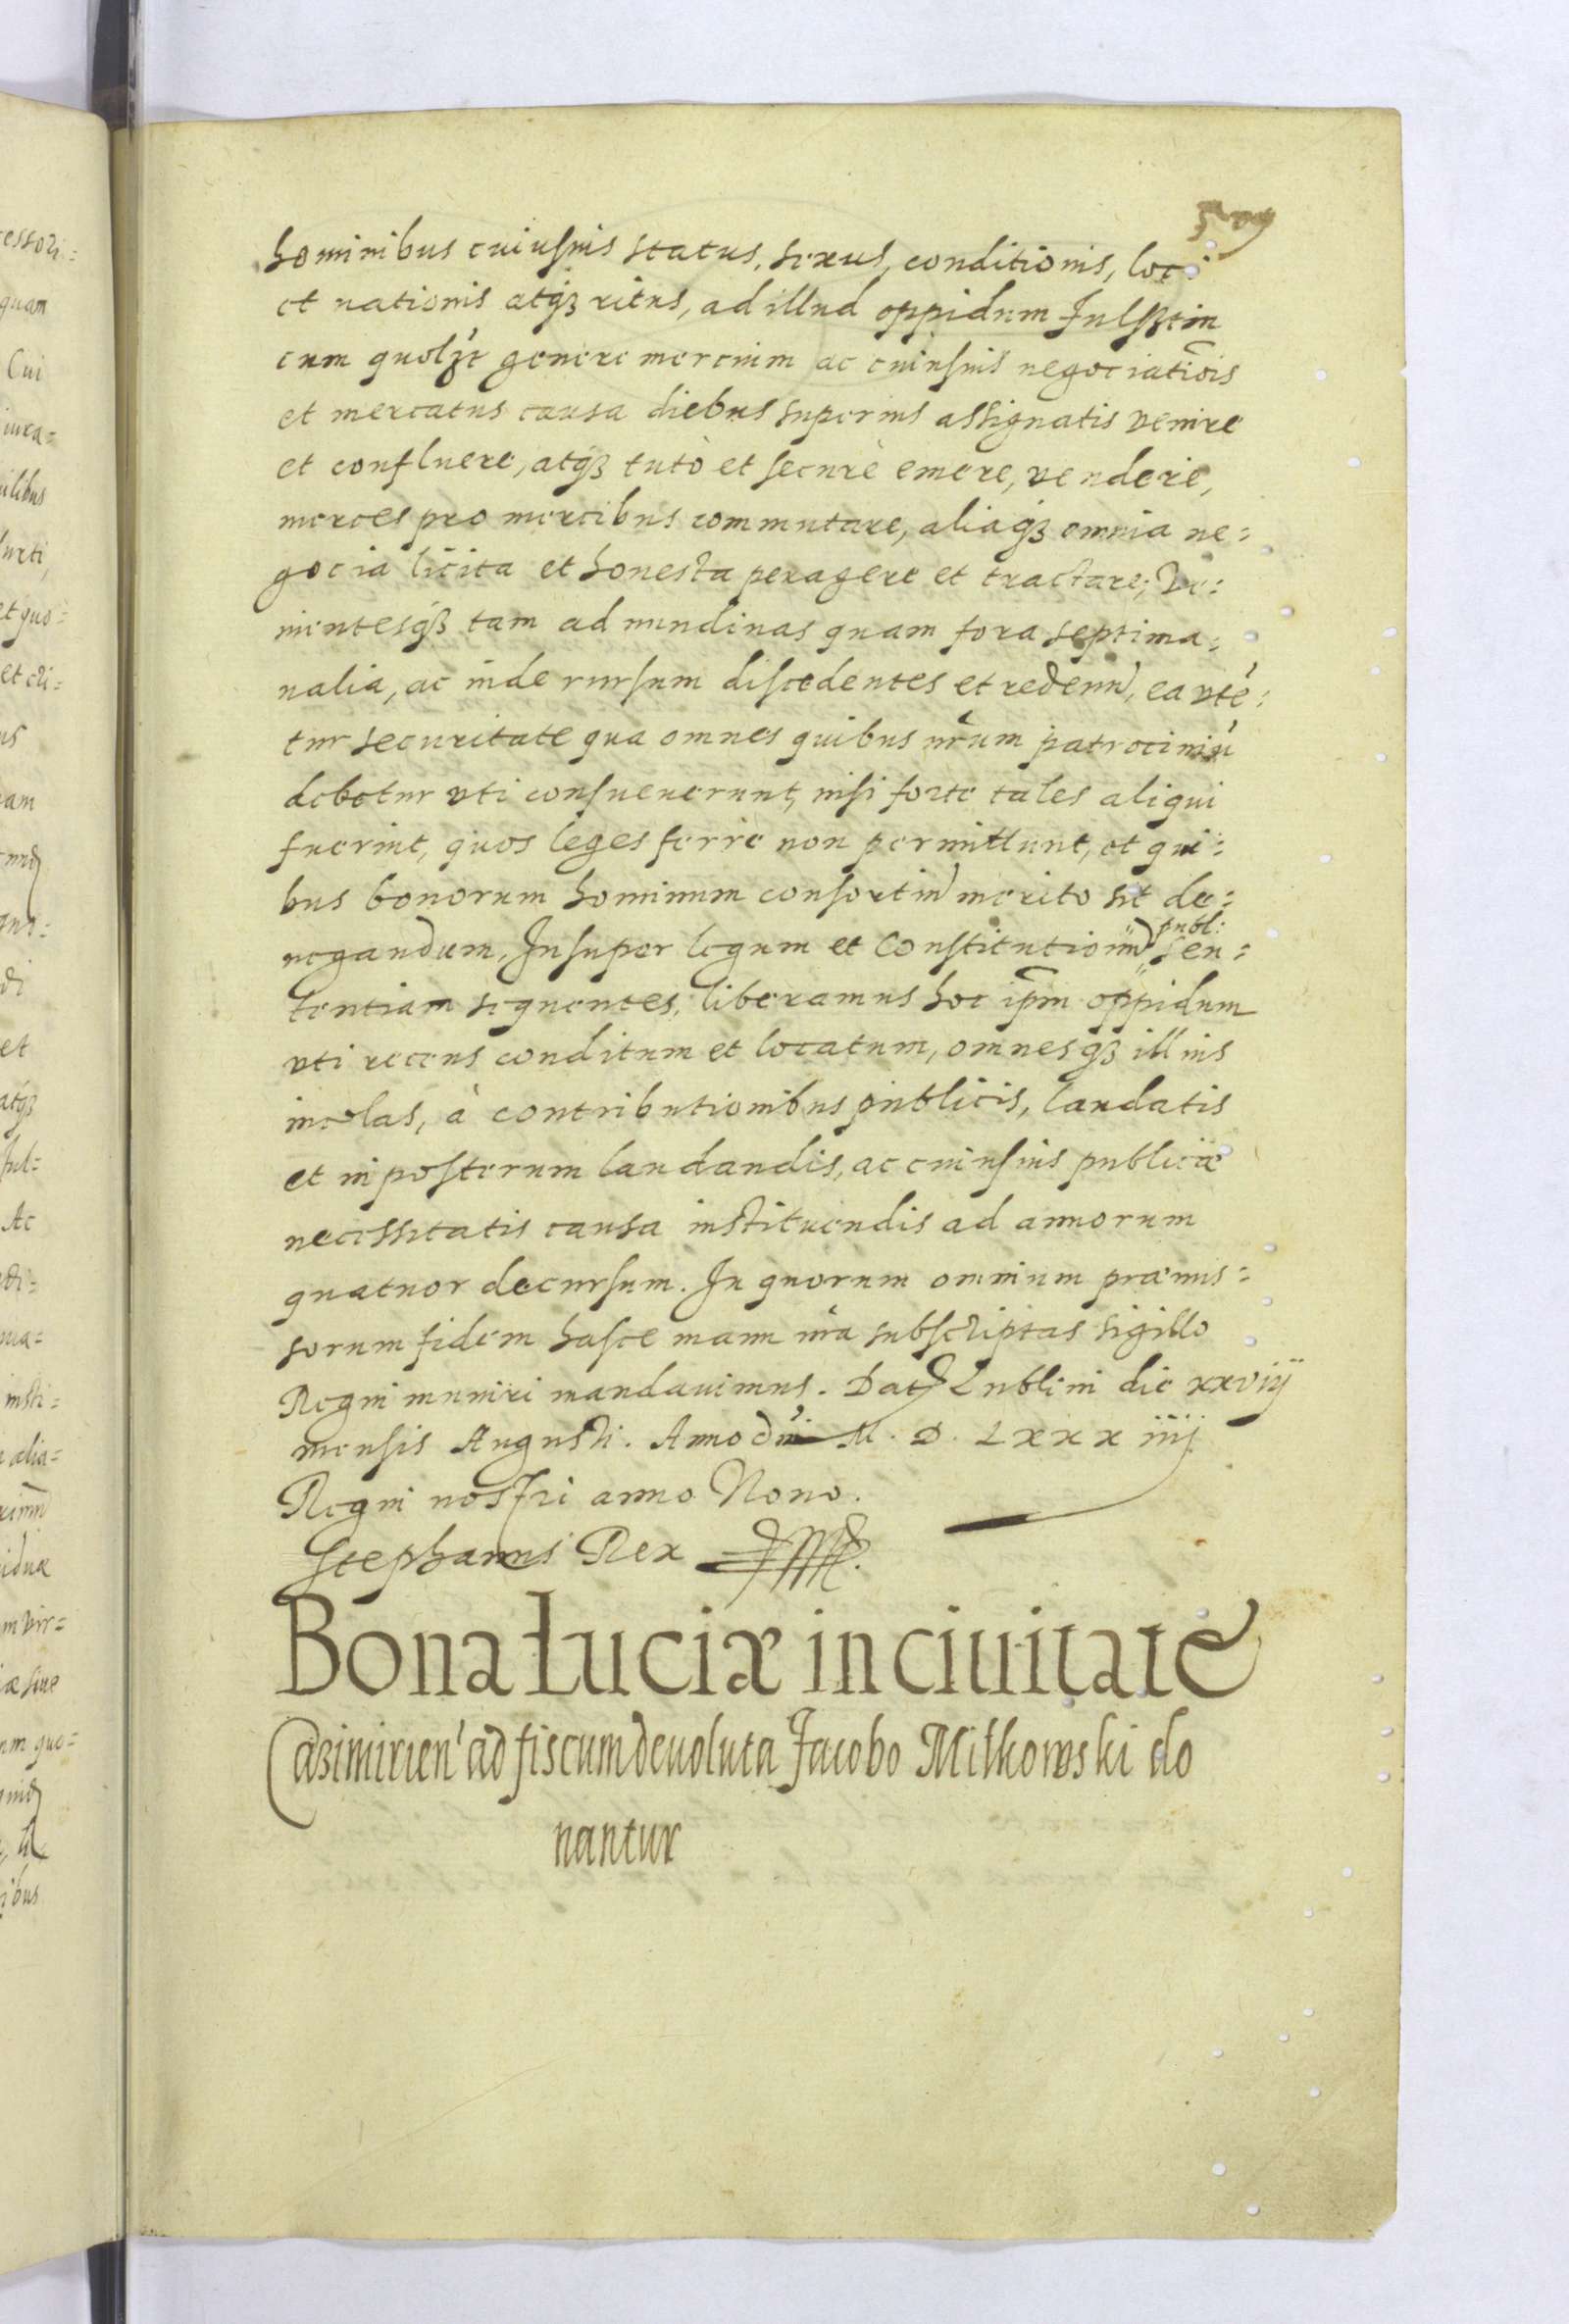 hominibus cuiusuis status, sexus, conditionis, loci
et nationis atqȝ ritus, ad illud oppidum Fulsztin
cum quolꝫt genere mercium ac cuiusuis negociatiōis
et mercatus causa diebus superius assignatis venire
et confluere, atqȝ tutò et securè emere, vendere,
merces pro mercibus commutare, aliaqȝ omnia ne=
gocia licita et honesta peragere et tractare; Ve=
nientesqȝ tam ad nundinas quam fora septima=
nalia, ac inde rursum discedentes et redeun, ea vtē=
tur securitate qua omnes quibus nr̄um patrociniū
debetur vti consueuerunt, nisi forte tales aliqui
fuerint, quos leges ferre non permittunt, et qui=
bus bonorum hominum consortiū merito sit de=
negandum. Insuper legum et Constitutionū publ: sen=
tentiam sequentes, liberamus hoc ip̄m oppidum
vti recens conditum et locatum, omnesqȝ illius
incolas, à contributionibus publicis, laudatis
et in posterum laudandis, ac cuiusuis publicæ
necessitatis causa instituendis ad annorum
quatuor decursum. In quorum omnium præmis=
sorum fidem hasce manu nr̄a subscriptas sigillo
Regni muniri mandauimus. Dat Lublini die xxviij
mensis Augusti. Anno dn̄i M. D. Lxxx iiij
Regni nostri anno Nono.
Stephanus Rex
Bona Łuciæ in ciuitate
Casimirien' ad fiscum deuoluta Jacobo Miłkowski do
nantur